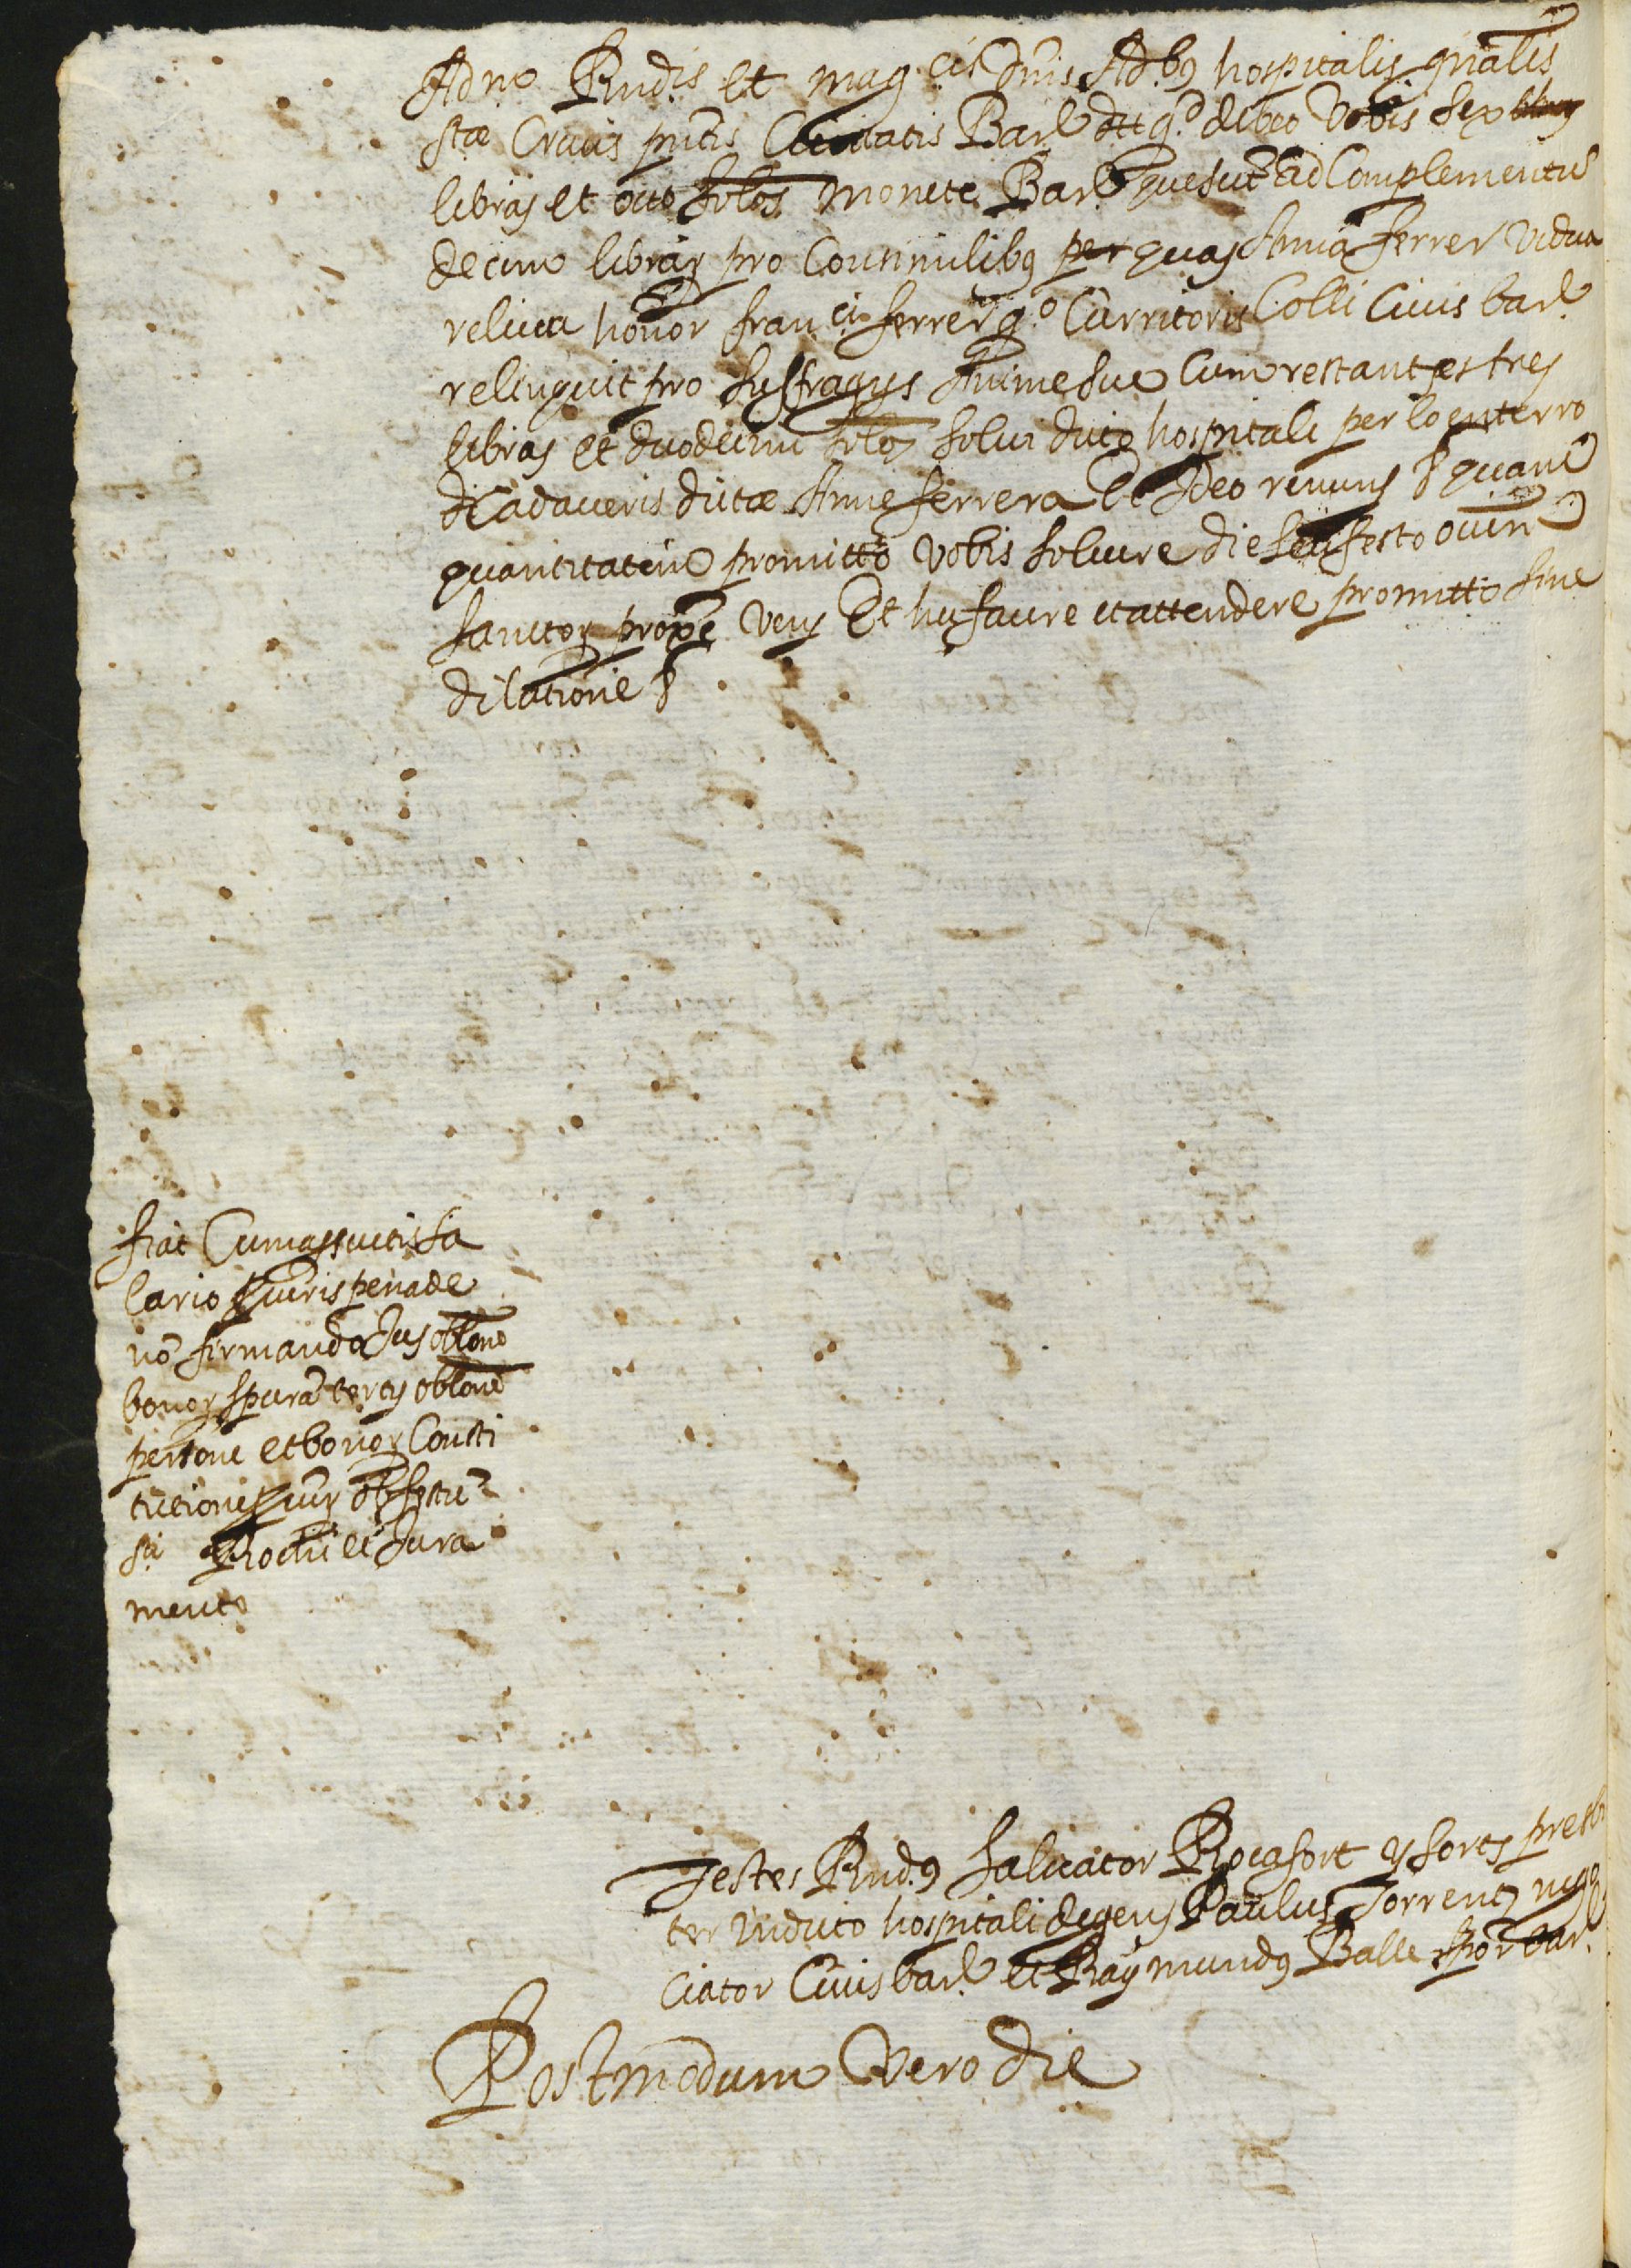 Adm.o Rnd.is et mag.cis Dnis Ad.bꝯ hospitalis gnalis
stæ Crucis pntis Civitatis Bar. q.d debeo vobis sex
libras et octo solos monete Bar. que sut ad Complementu
decem librar pro Consimilibꝯ per quas Anna ferrer vidua
relicta honor fran.ci ferrer q.o Curritoris Colli Civis bar.
relinquit pro suffragys Anime sue Cum restantes tres
libras et duodecim solos solvi dicto hospitali per lo enterro
Cadaveris dictæ Anne ferrera Et Ideo renuns & quam
quantitatem promitto vobis solvere die seu festo omn
sanctor prope veny Et hec facere et attendere promitto sine
dilatione &
fiat Cum assuetis sa
lario pena de
no firmando Jus oblone
bonor oblone
persone et bonor Consti
tutionis
et Jura
mento
Testes Rnd.ꝯ Salvator Rocafort y sorts presbi
ter in dicto hospitali degens Paulus Torrent nego
ciator Civis bar. et Raymundꝯ Balle bar.
Postmodum vero die